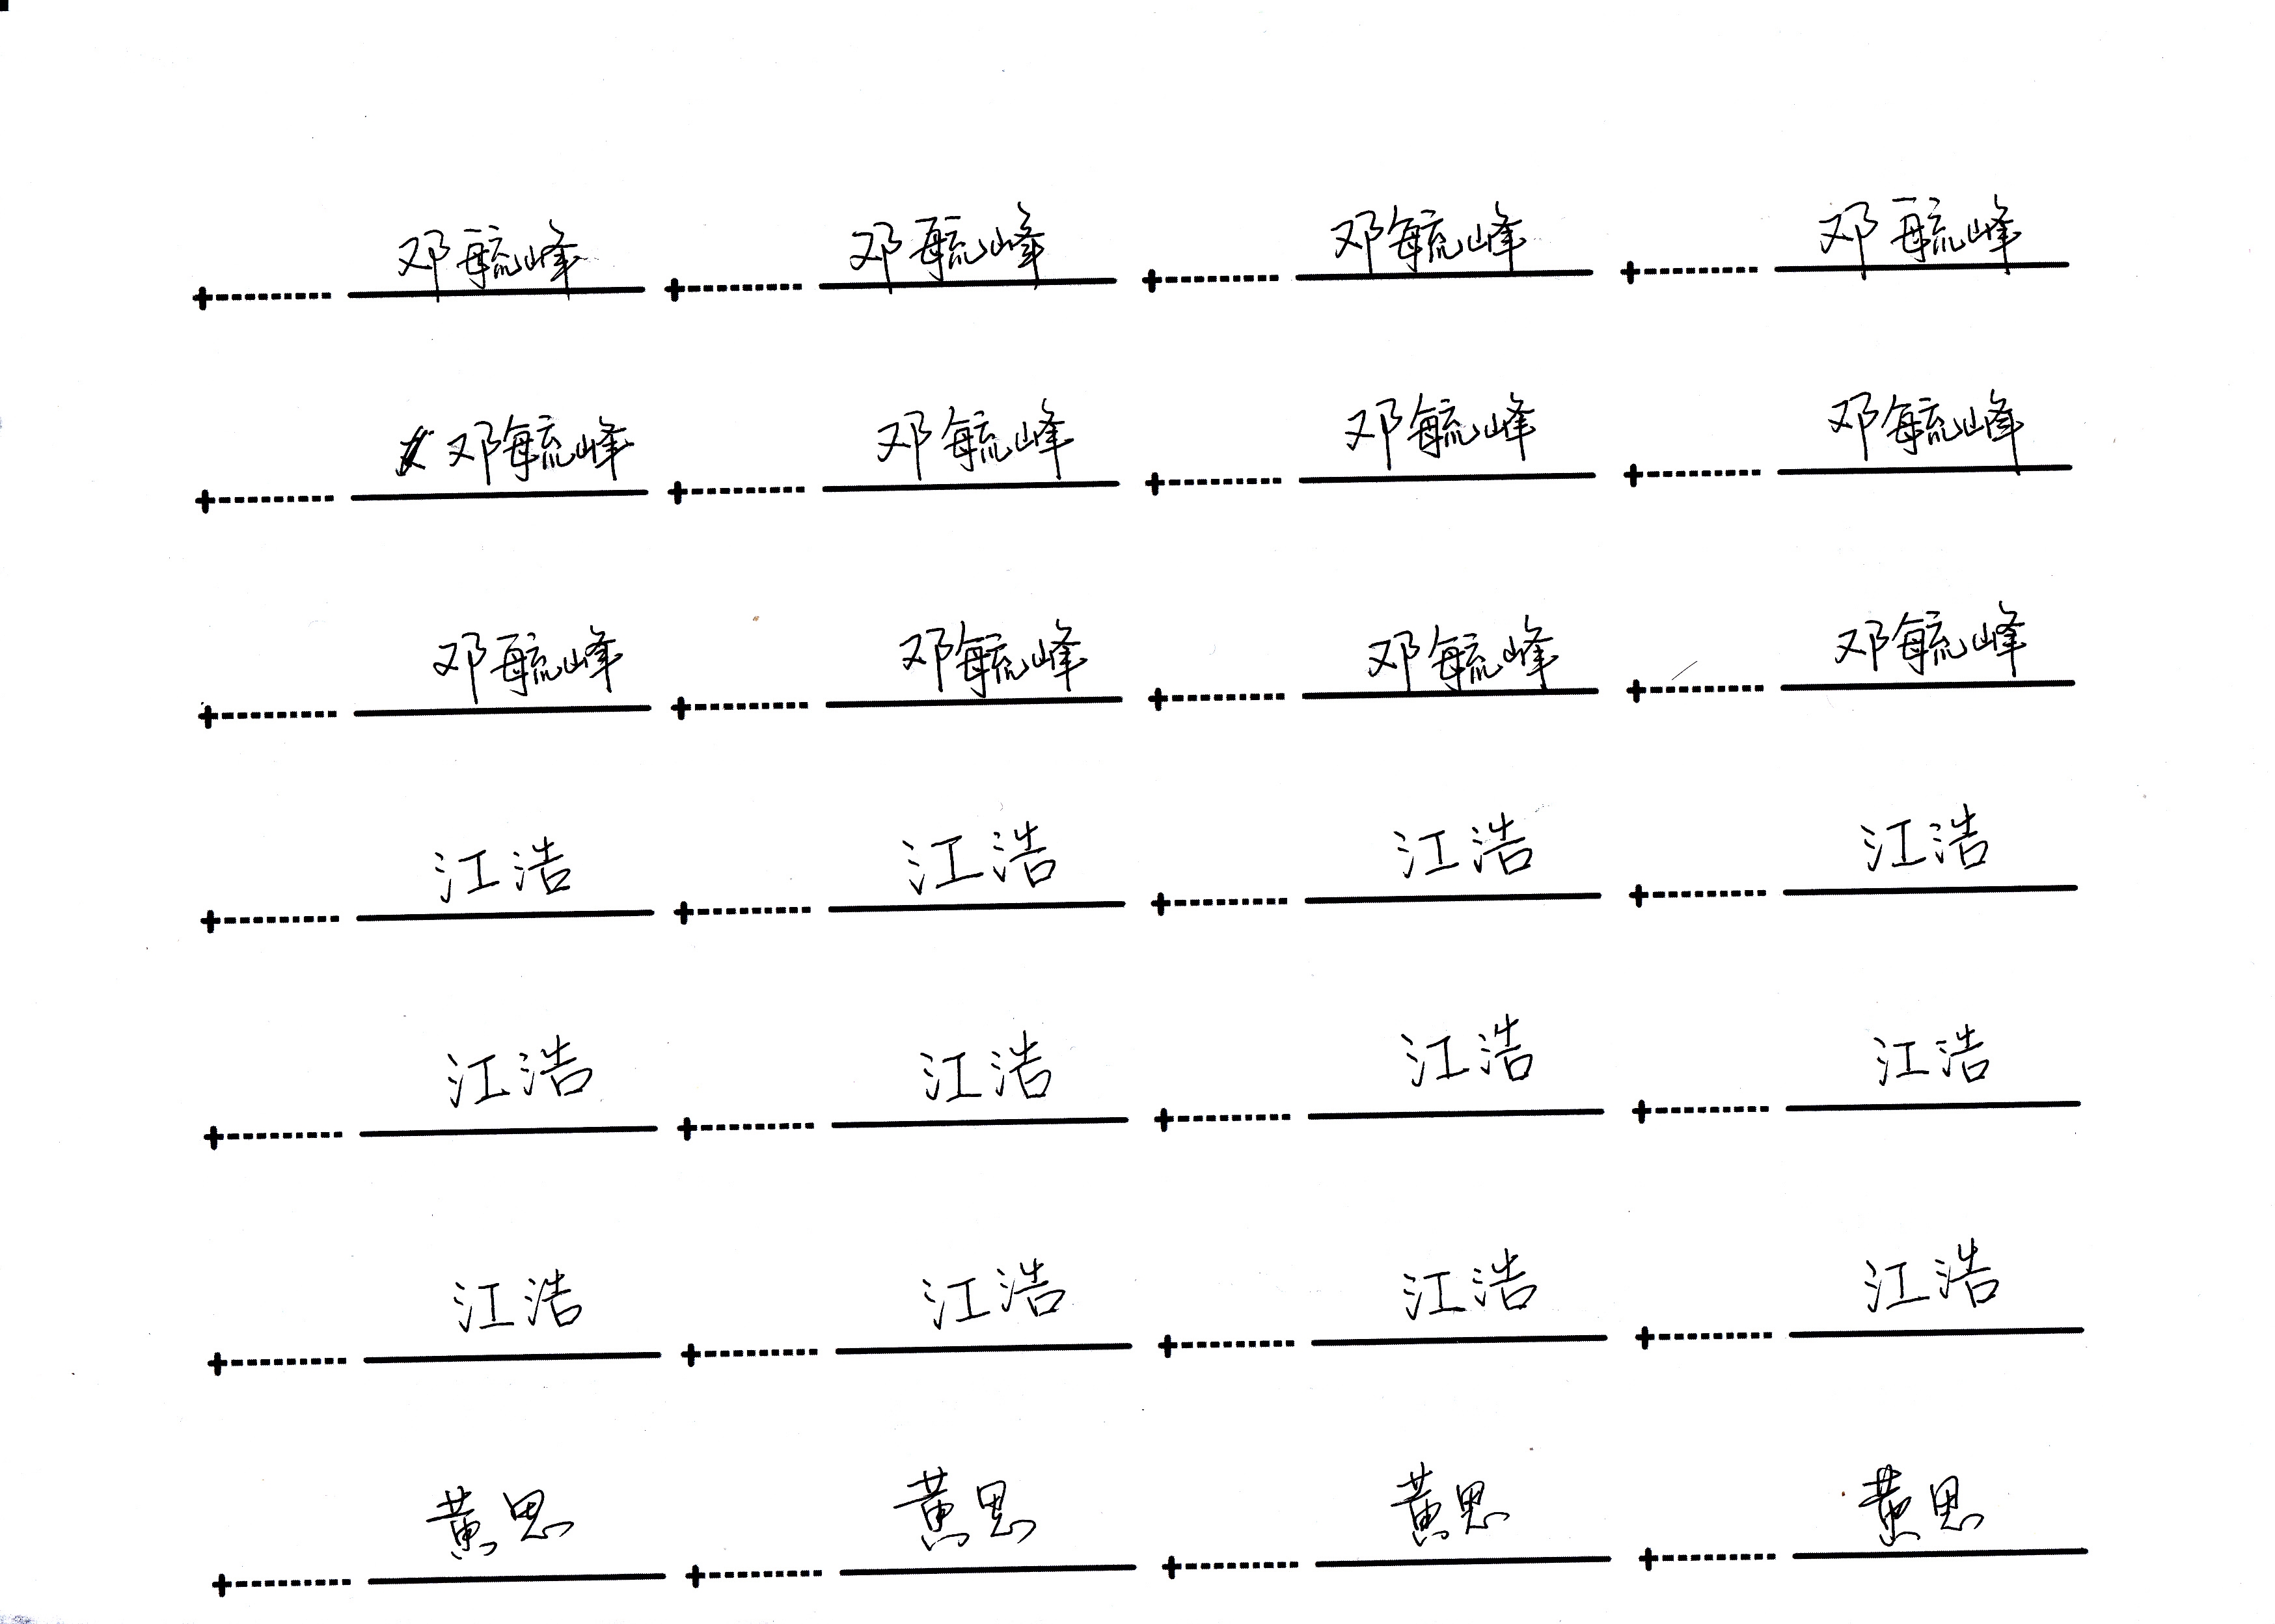 邓毓峰 邓毓峰 邓毓峰 邓毓峰
邓毓峰 邓毓峰 邓毓峰 邓毓峰
邓毓峰 邓毓峰 邓毓峰 邓毓峰
江浩 江浩 江浩 江浩
江浩 江浩 江浩 江浩
江浩 江浩 江浩 江浩
黄思 黄思 黄思 黄思